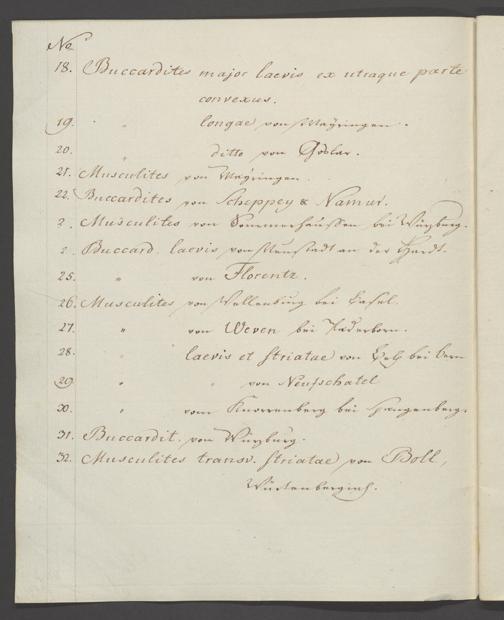 No
18. Buccardites major laevis ex utraque parte
convexus.
19. " longae von Mayringen.
20. " ditto von Goslar.
21. Musculites von Mayringen.
22. Buccardites von Scheppey & Namur.
2. Musculites von Sommerhaussen bei Würzburg.
2. Buccard. laevis von Neustadt an der Hardt.
25. " von Florentz.
26. Musculites von Wallenburg bei Basel.
27. " von Weven bei Paderborn.
28. " laevis et striatae von bei Bern
29. " " von Neufschatel
30. " vom bei
31. Buccardit. von Würzburg.
32. Musculites transv. striatae von Boll,
Würtenbergisch.